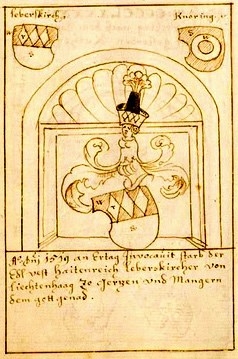 Leberskirch. Knoring.
Año Dnj 1519 an Ertag Invocauit starb der
Edl vest Haitenreich Leberskircher von
Liechtenhaag zo Gerzen vnd Mangern
dem gott genad.